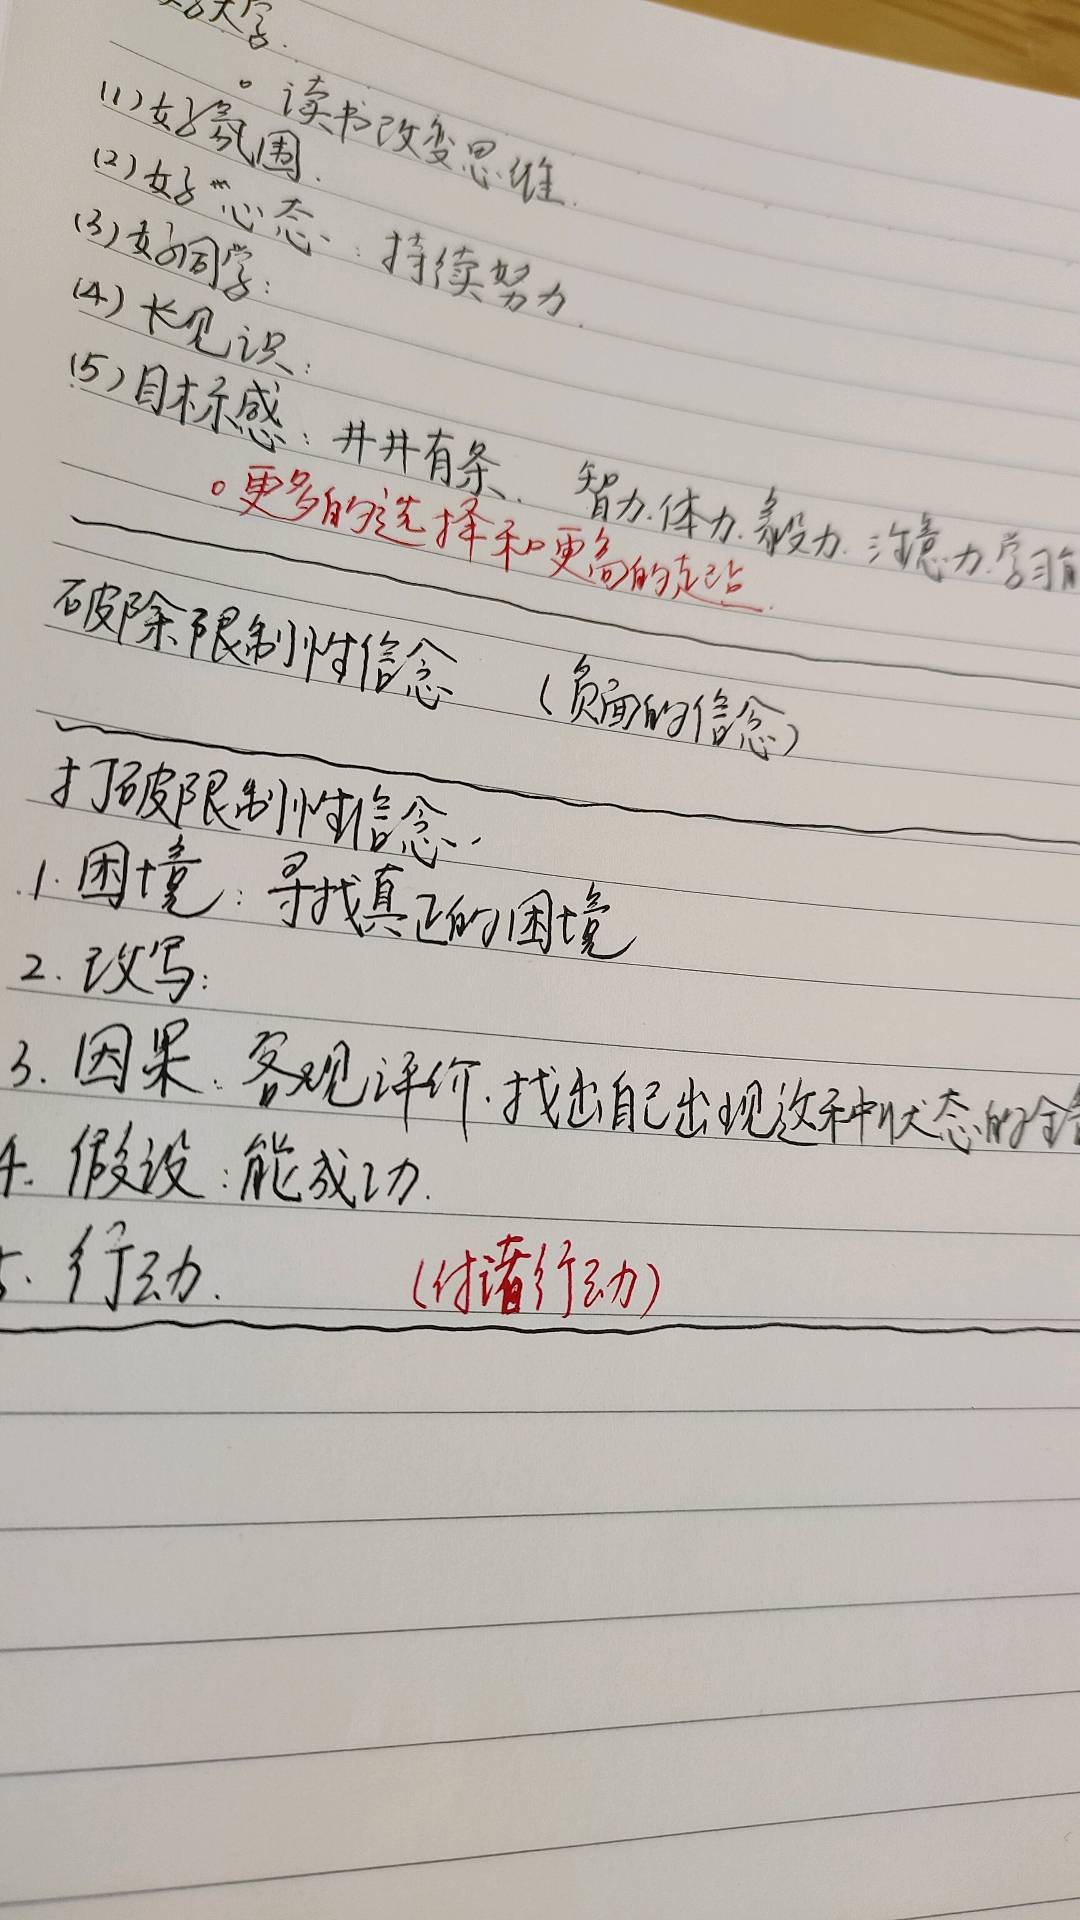 好大学.
。读书改变思维.
(1)好氛围.
(2)好"心态: 持续努力.
(3)好同学:
(4)长见识:
(5)目标感: 井井有条. 智力.体力.毅力.注意力.学习
。更多的选择和更高的起点.
破除限制性信念 (负面的信念)
打破限制性信念:
1.困境: 寻找真正的困境
2.改写:
3.因果: 客观评价.找出自己出现这种状态的
4.假设:能成功.
5.行动. (付诸行动)